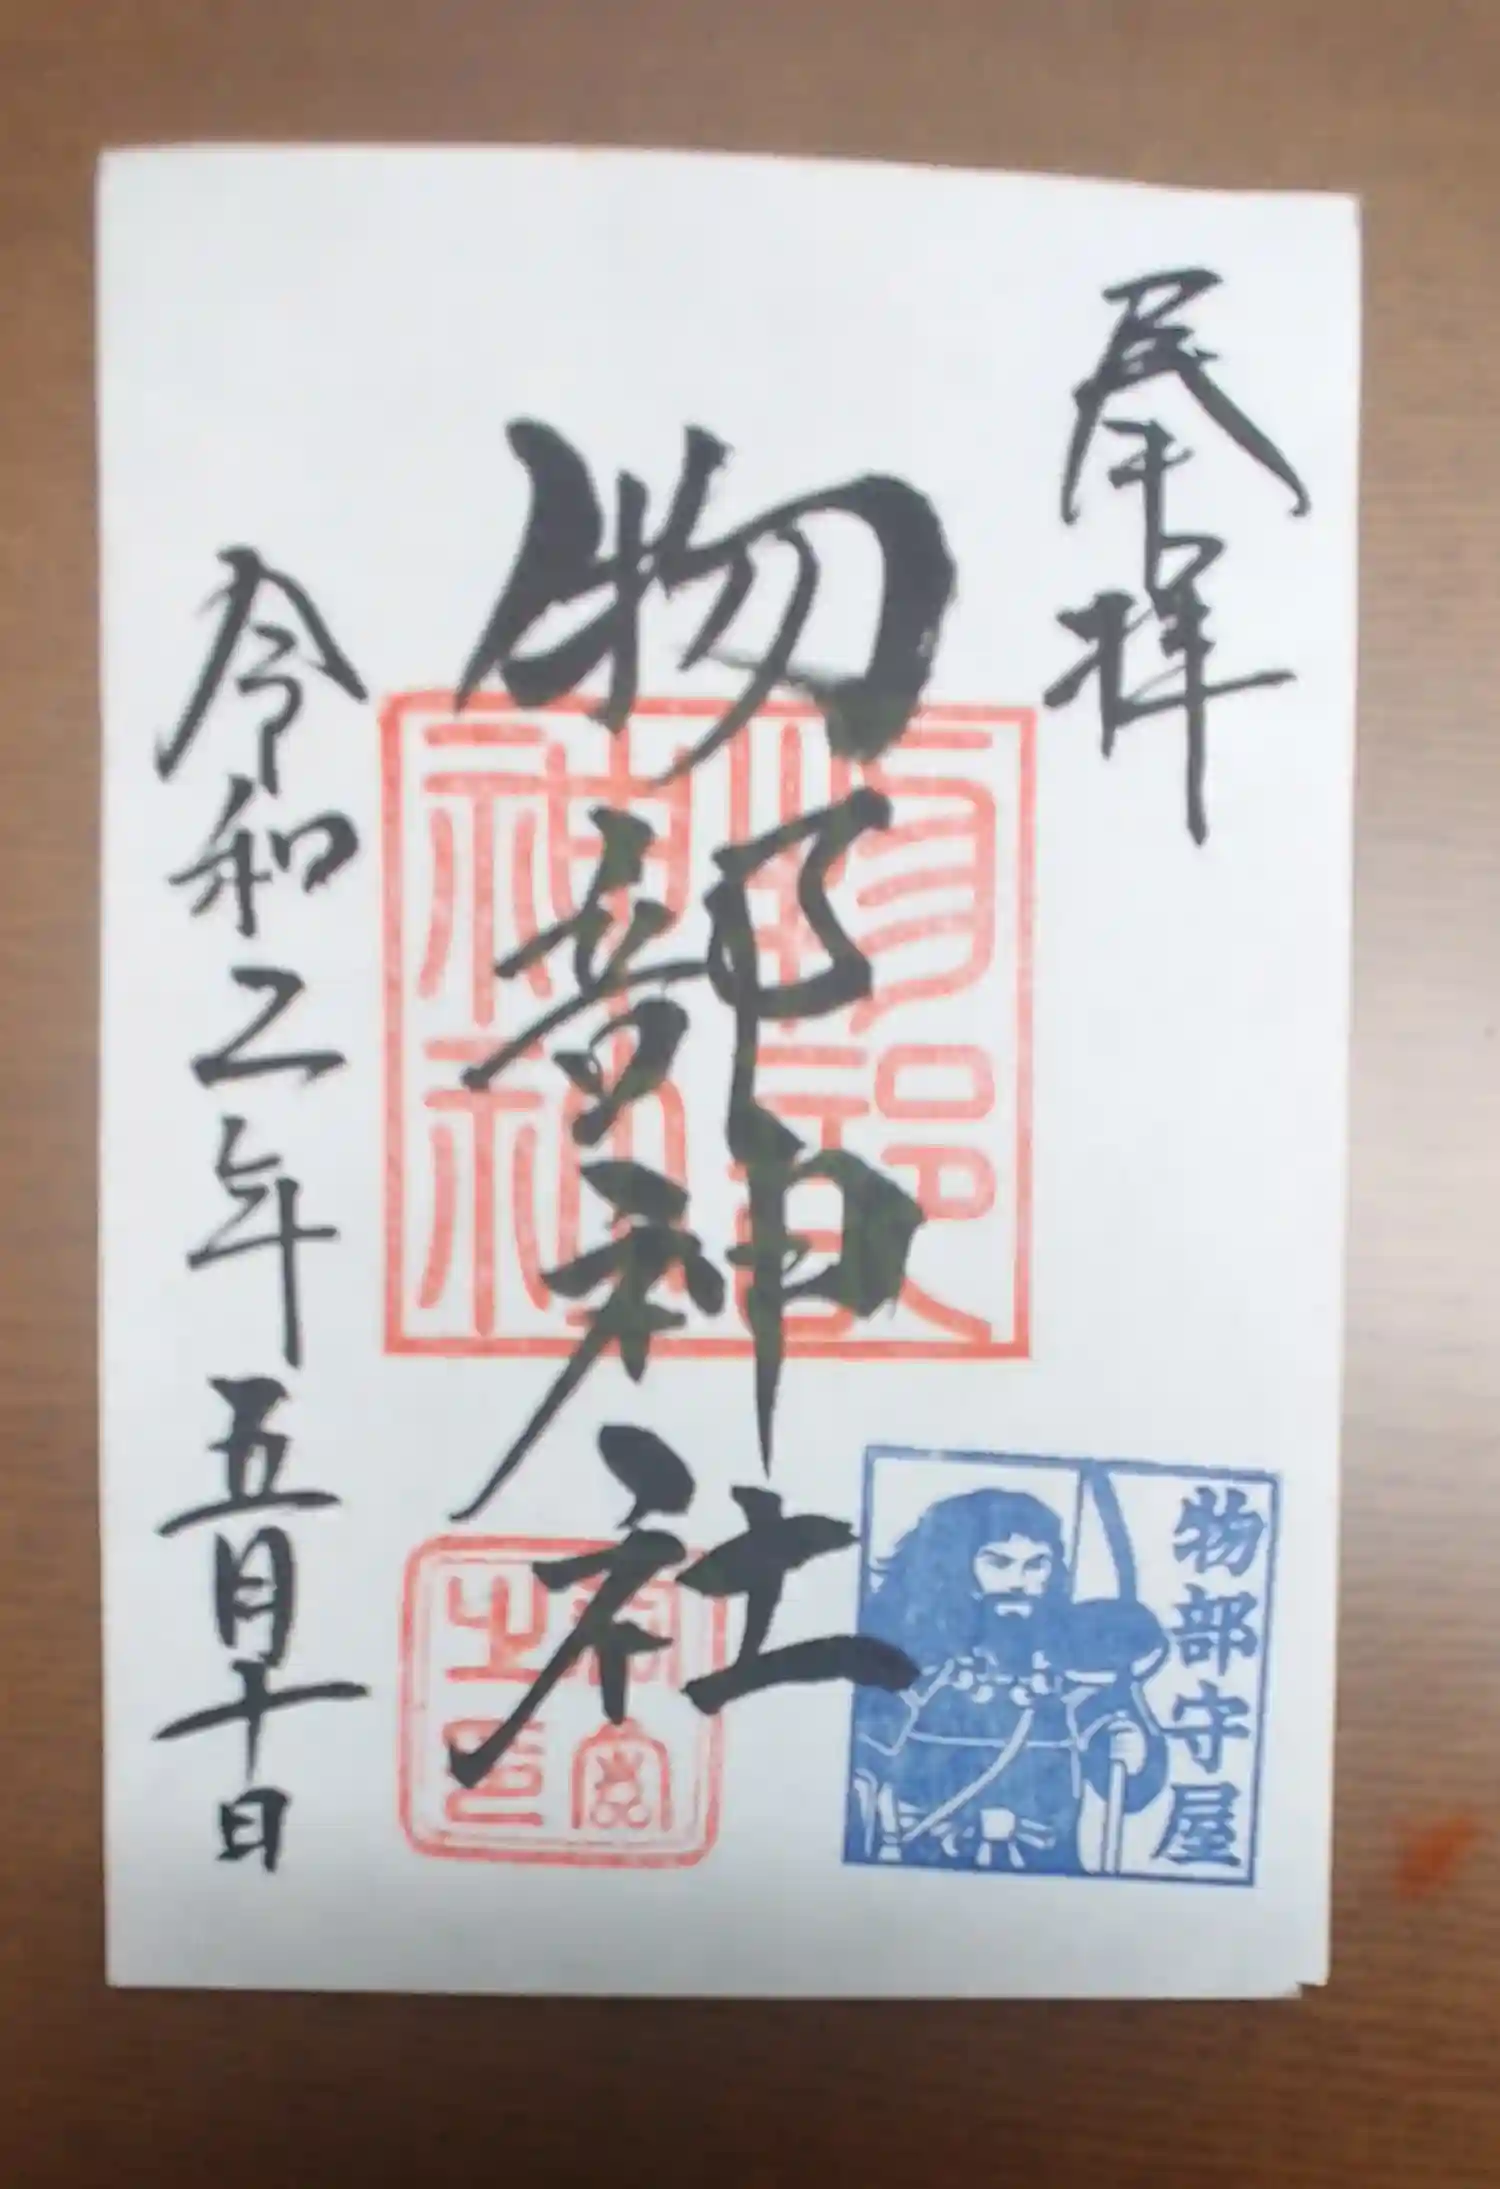 奉拝
物部神社
令和二年五月十日
物部神社
宮司之印
物部守屋